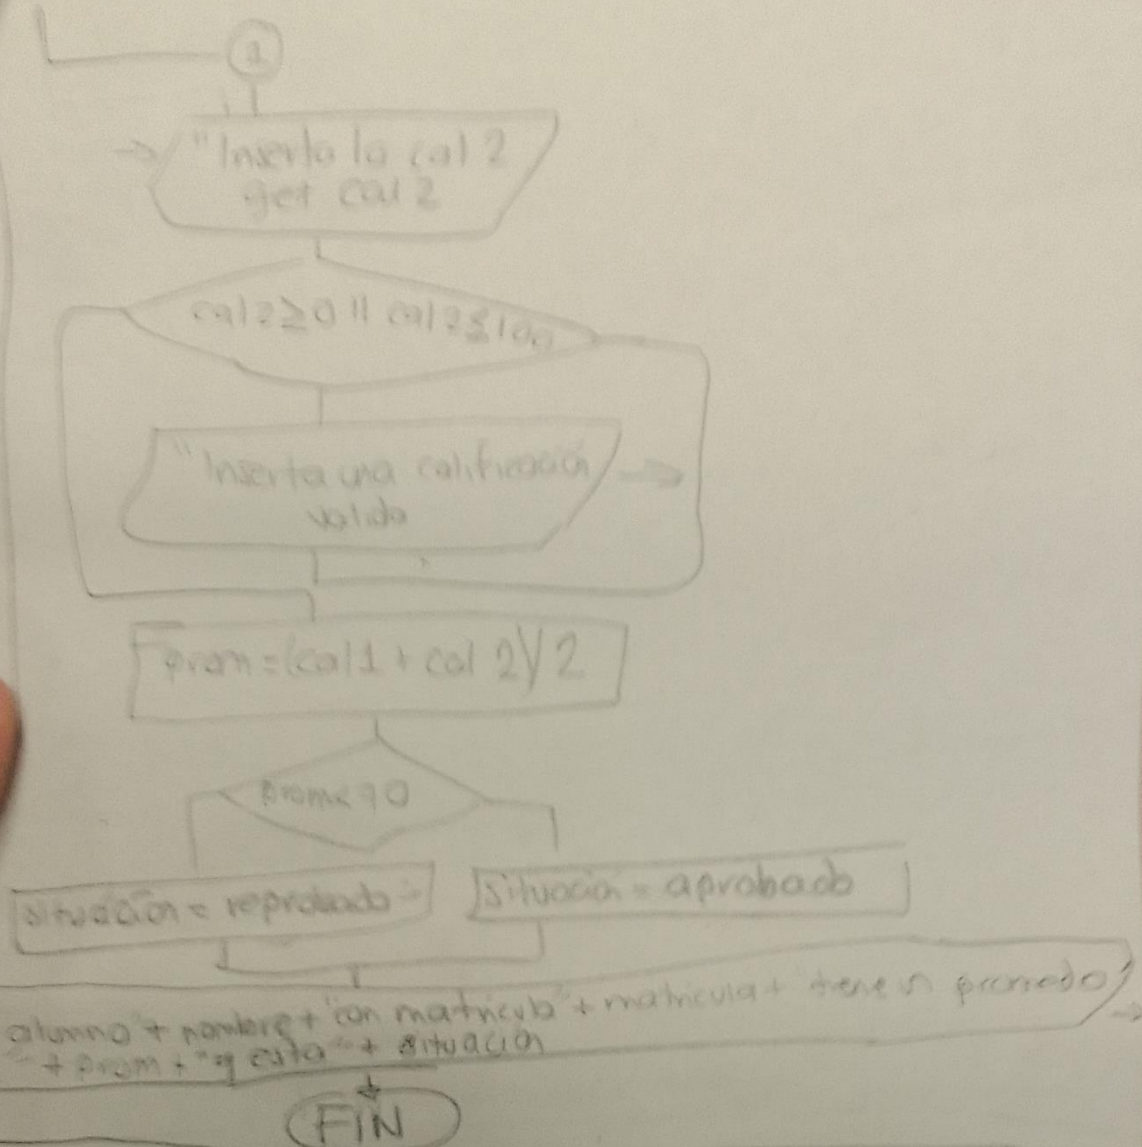 1
"Inserta la cal 2
get cal 2
cal2≥0 || cal2≤100
"Inserta una calificación
valida
prom=(cal1 + cal 2)/2
prom<70
situación = reprobado
situación = aprobado
alumno" + nombre + "con matricula" + matricula + "tiene un promedio
" + prom + "y esta" + situación
FIN